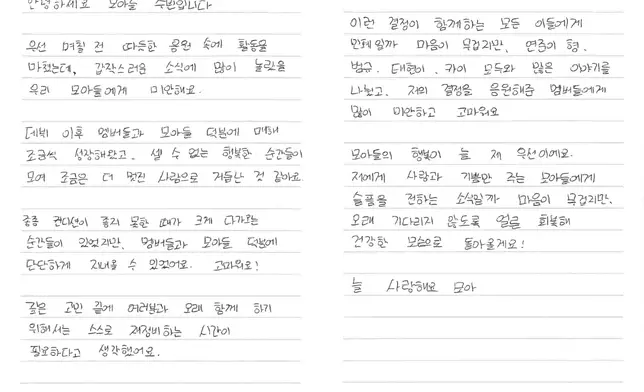 안녕하세요 모아들 수빈입니다
우선 며칠 전 따듯한 응원 속에 활동을
마쳤는데, 갑작스러운 소식에 많이 놀랐을
우리 모아들에게 미안해요.
데뷔 이후 멤버들과 모아들 덕분에 매해
조금씩 성장해왔고. 셀 수 없는 행복한 순간들이
모여 조금은 더 멋진 사람으로 거듭난 것 같아요.
종종 컨디션이 좋지 못한 때가 크게 다가오는
순간들이 있었지만, 멤버들과 모아들 덕분에
단단하게 지내올 수 있었어요. 고마워요!
깊은 고민 끝에 여러분과 오래 함께 하기
위해서는 스스로 재정비하는 시간이
필요하다고 생각했어요.
이런 결정이 함께하는 모든 이들에게
민폐일까 마음이 무겁지만, 연준이 형.
범규. 태현이. 카이 모두와 많은 이야기를
나눴고. 저의 결정을 응원해준 멤버들에게
많이 미안하고 고마워요
모아들의 행복이 늘 제 우선이에요.
저에게 사랑과 기쁨만 주는 모아들에게
슬픔을 전하는 소식일까 마음이 무겁지만.
오래 기다리지 않도록 얼른 회복해
건강한 모습으로 돌아올게요!
늘 사랑해요 모아